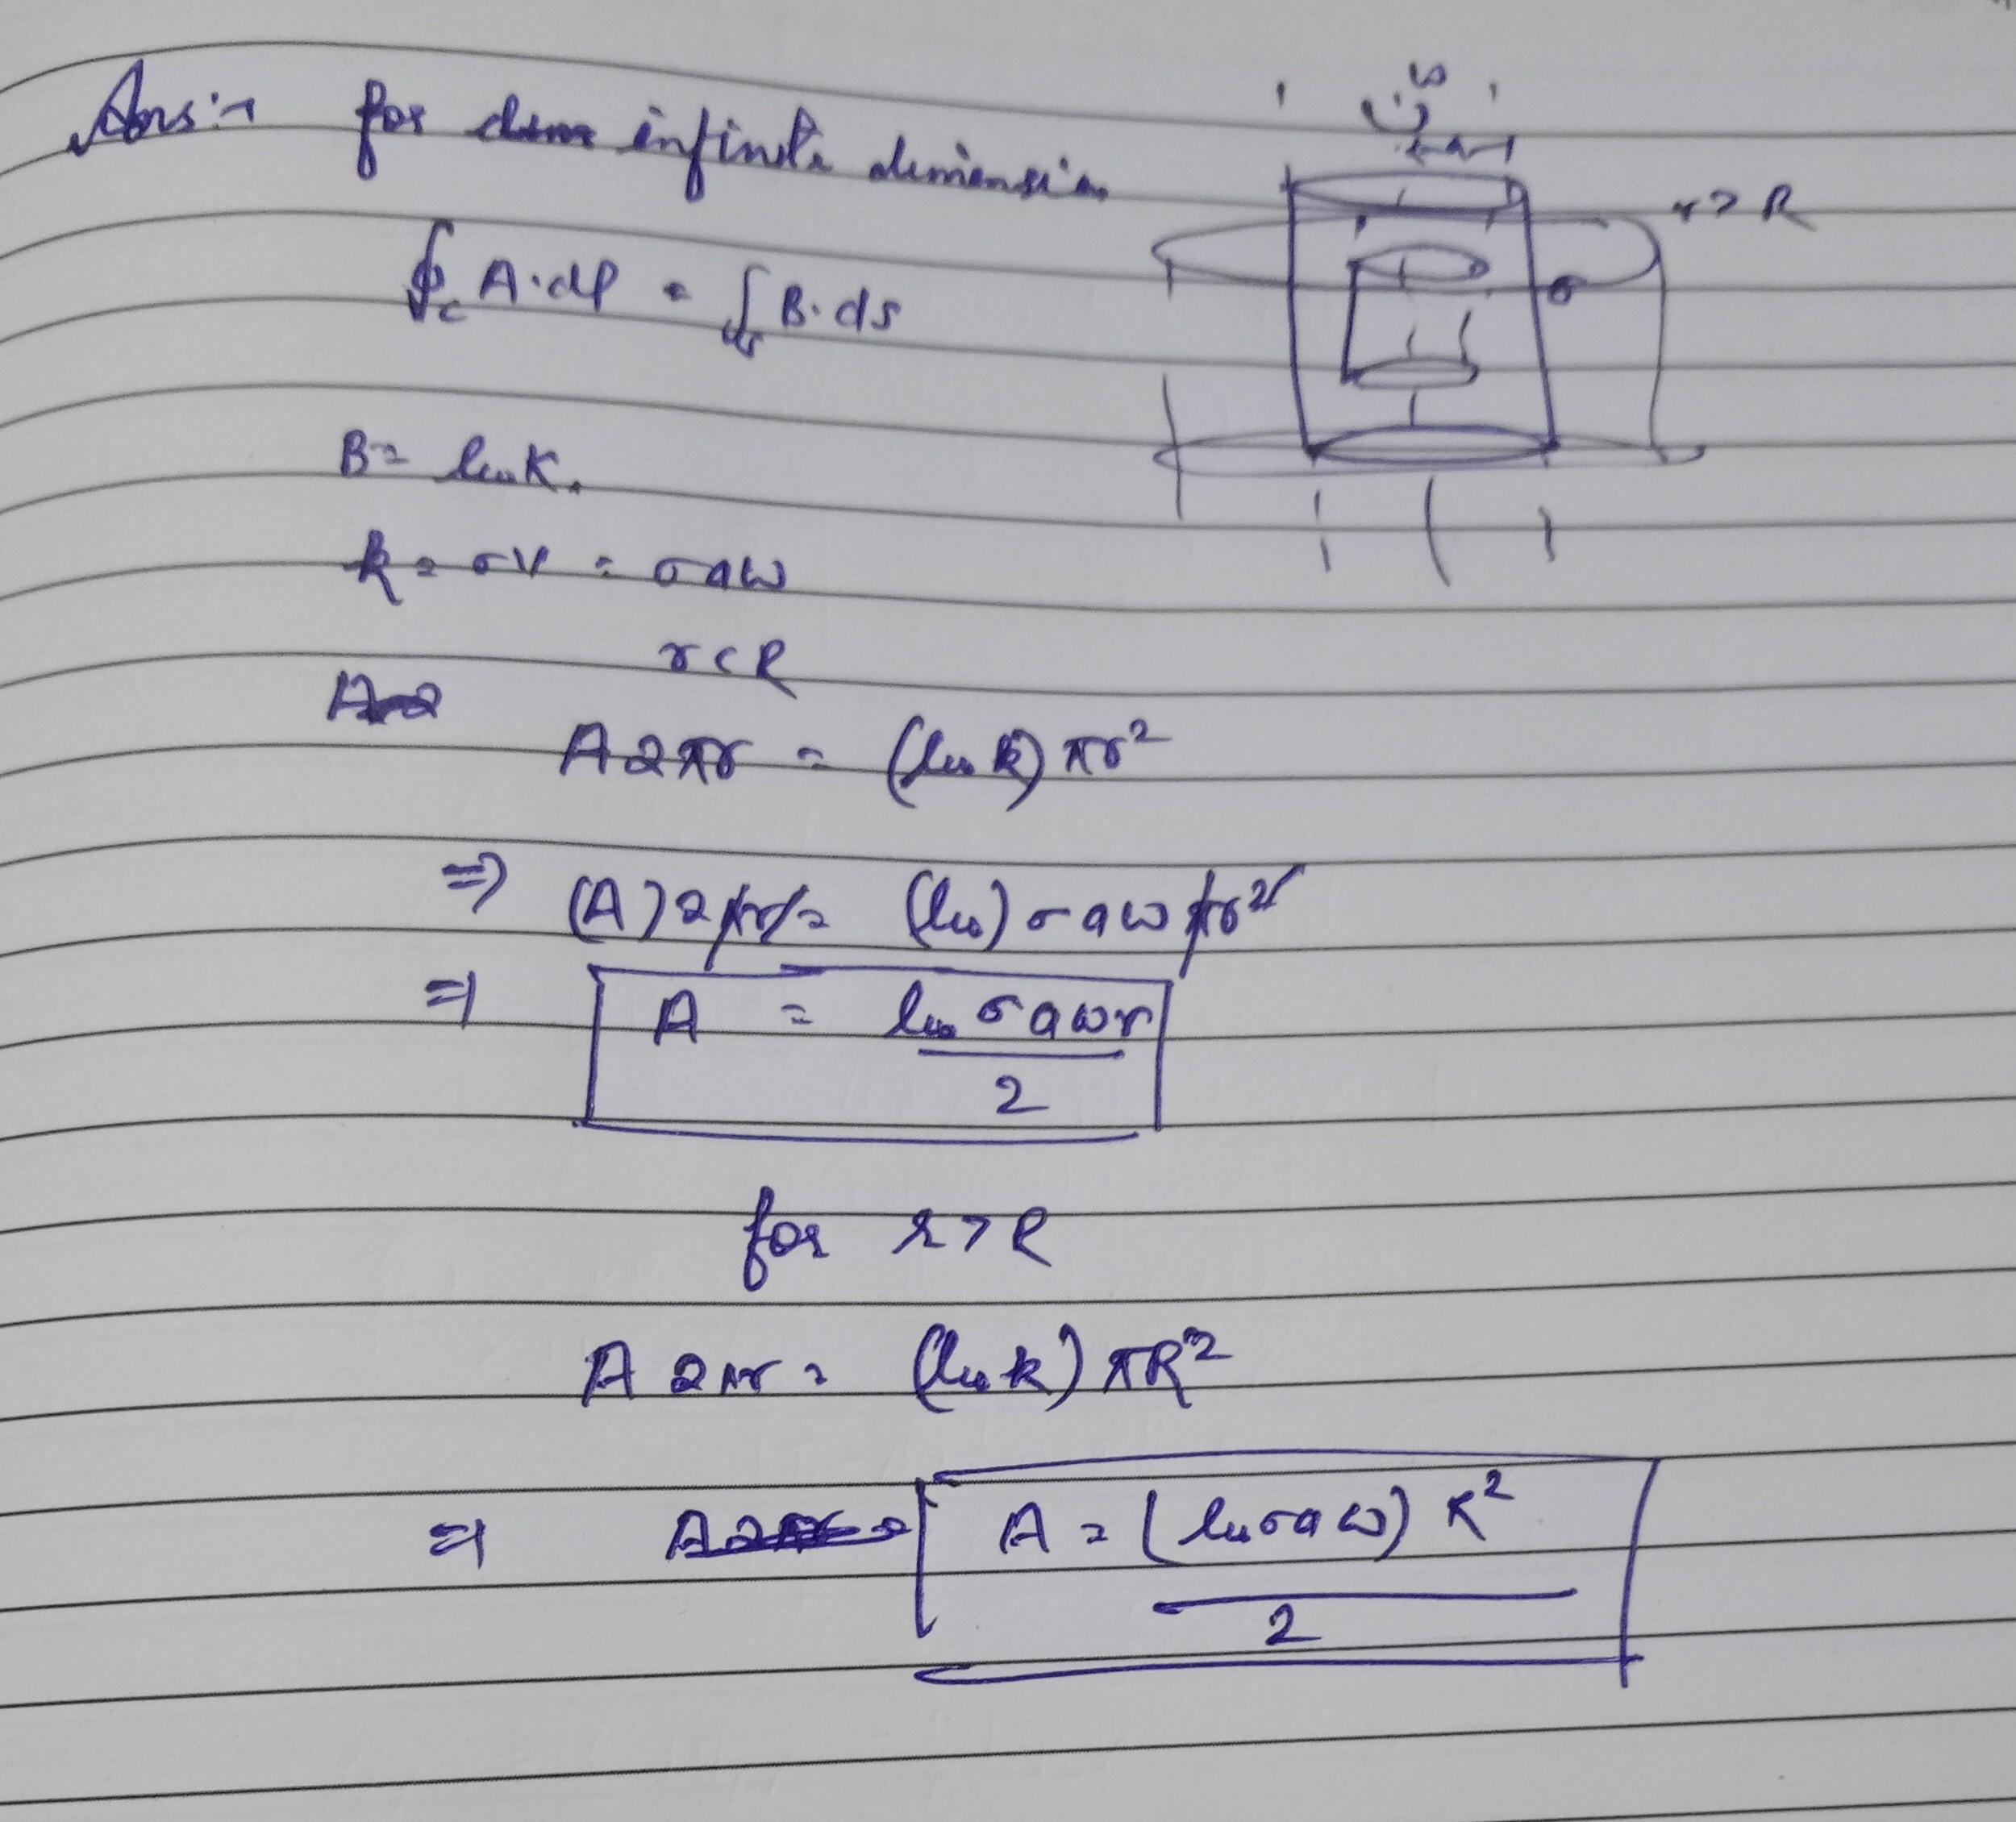 Ans:→ for infinite dimension
ω
a
r > R
σ
∮c A·dl = ∫s B·ds
B = μ₀K.
k = σv = σaω
r < R
A2πr = (μ₀k) πr²
⇒ (A) 2πr = (μ₀) σaω πr²
⇒ A = μ₀ σ a ω r
2
for r > R
A 2πr = (μ₀k) πR²
⇒ A = (μ₀σaω) R²
2